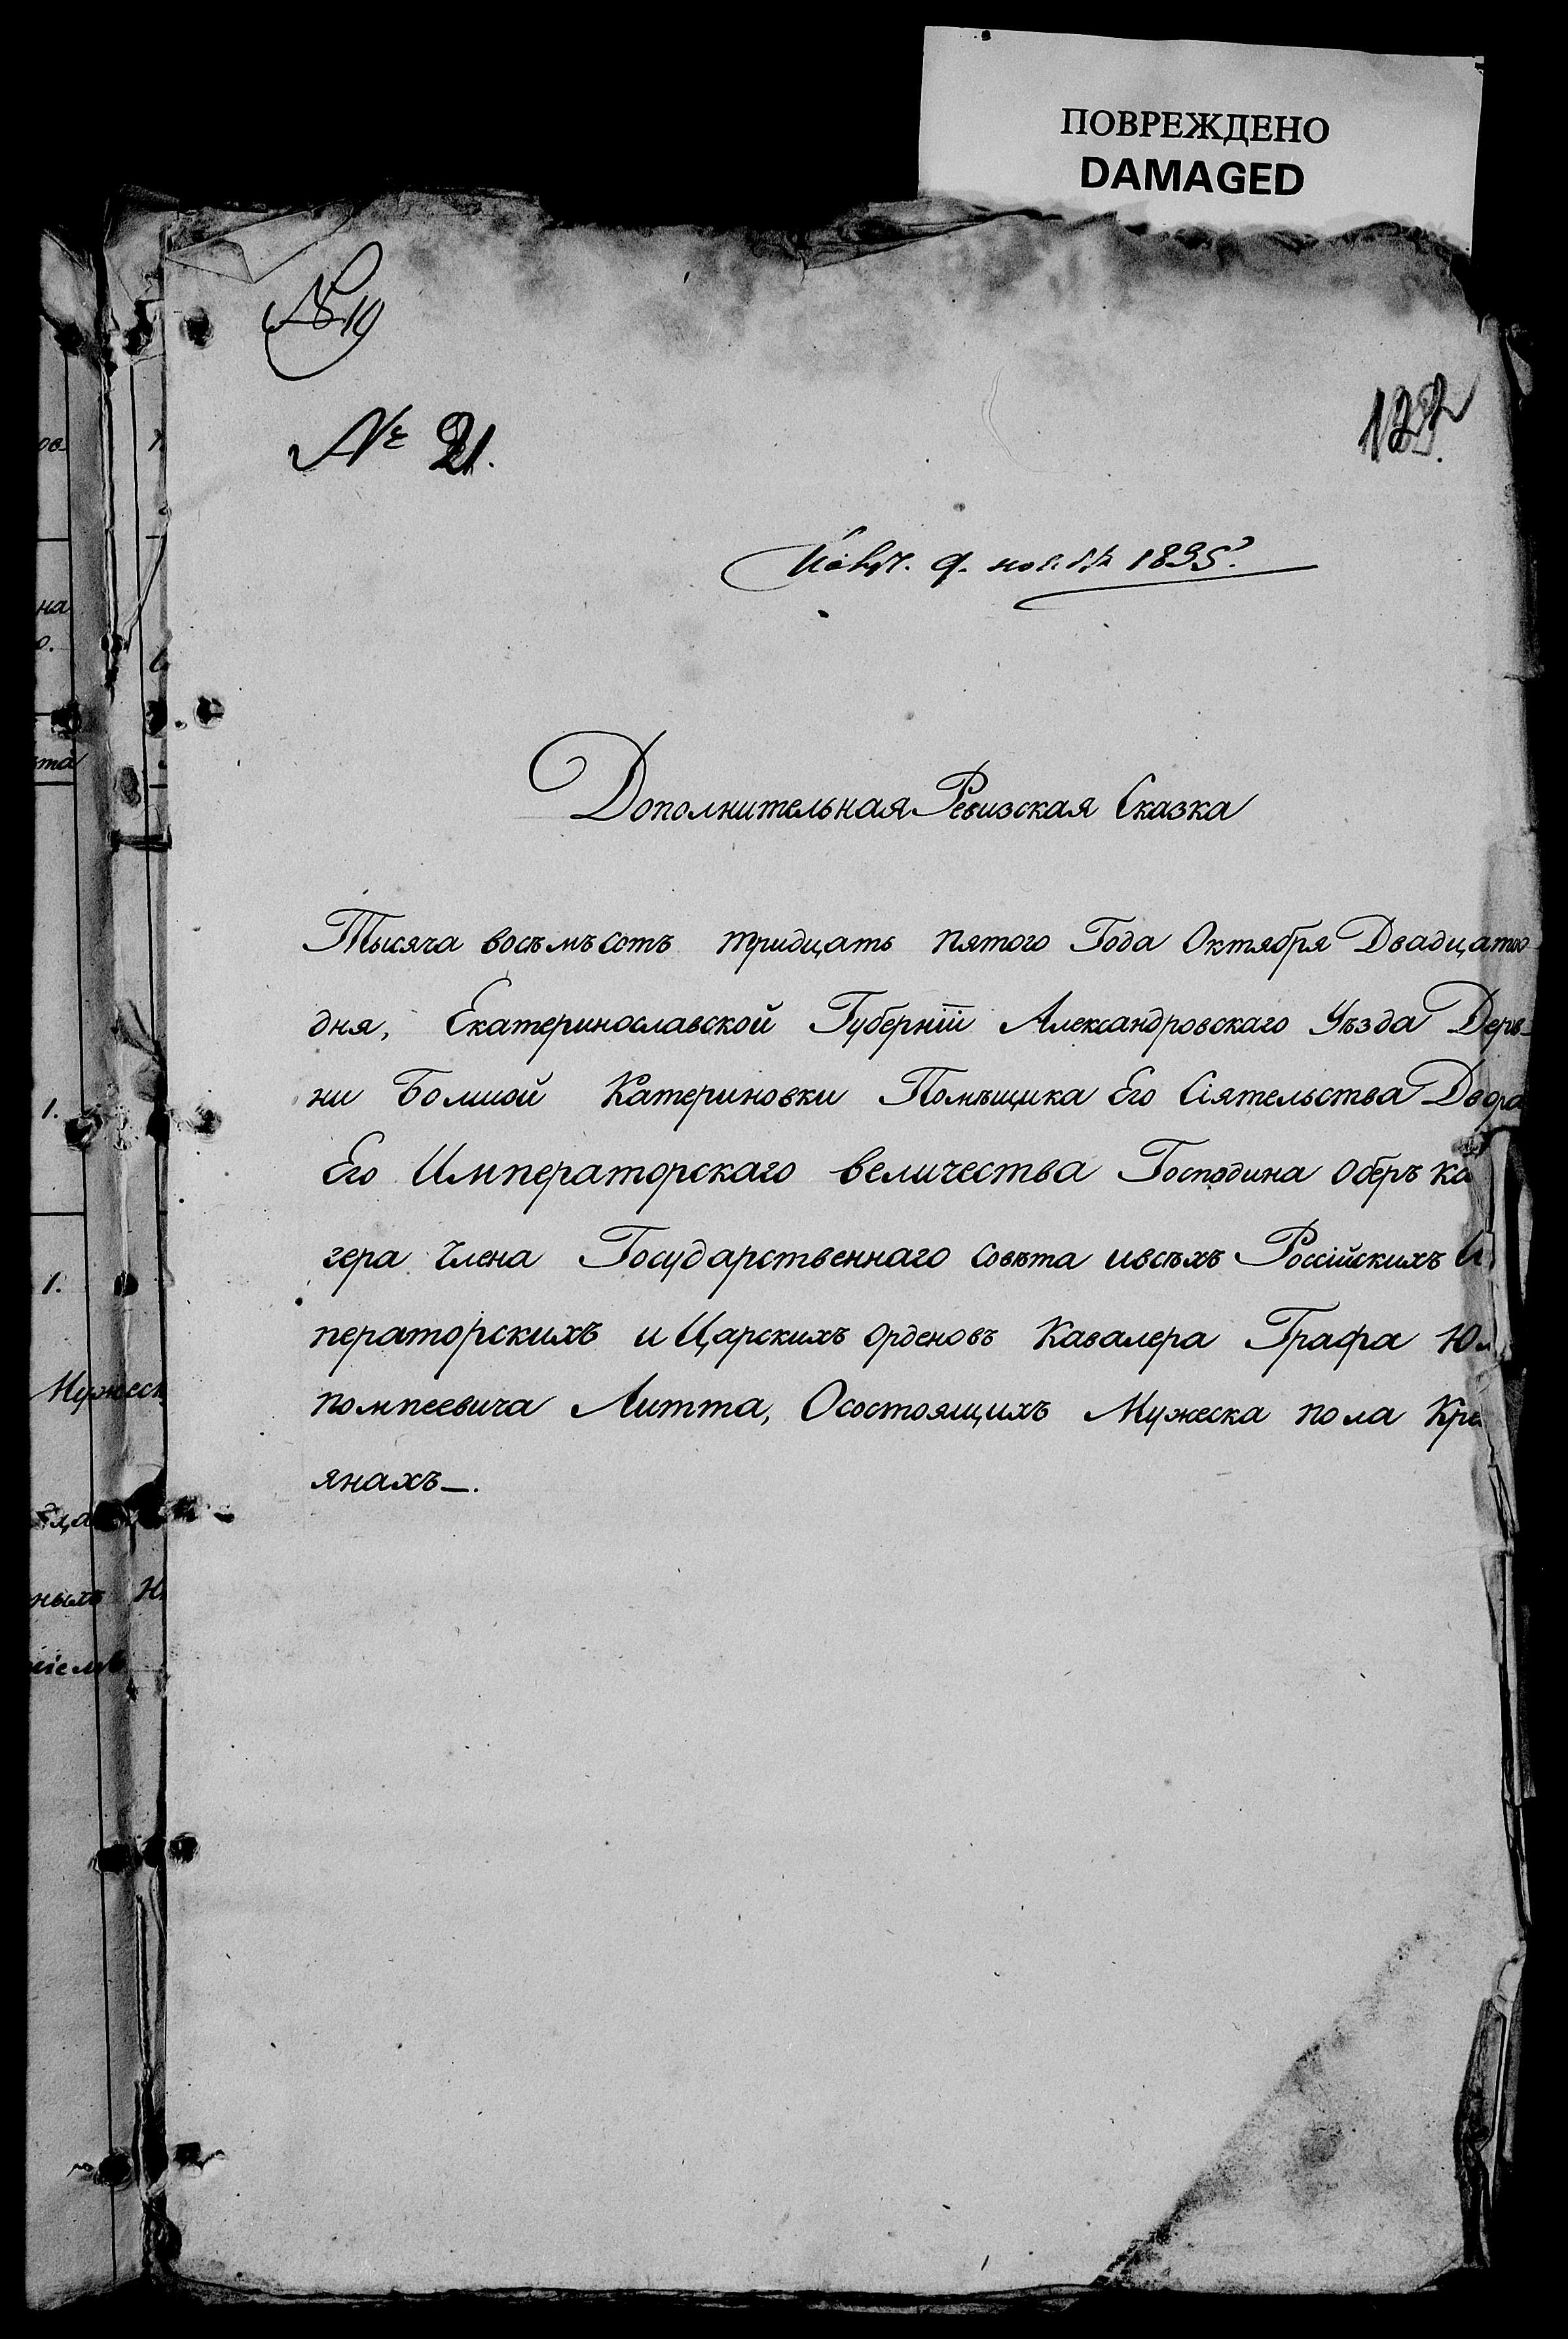 ПОВРЕЖДЕНО
DAMAGED
№ 19
№ 21.
9. нояб. 1835.
Дополнительная Ревизская Сказка
Тысяча восъмъсотъ тридцать пятого Года Октября Двадцатого
дня, Екатеринославской Губерніи Александровскаго Уѣзда Дерев-
ни Болшой Катериновки Помѣщика Его Сіятельства Двора
Его Императорскаго величества Господина Оберъ Ка
гера члена Государственнаго совѣта ивсѣхъ Россійскихъ И
ператорскихъ и Царскихъ Орденовъ Кавалера Графа Юл
помпеевича Литта, Осостоящихъ Мужеска пола Кре
янахъ—.